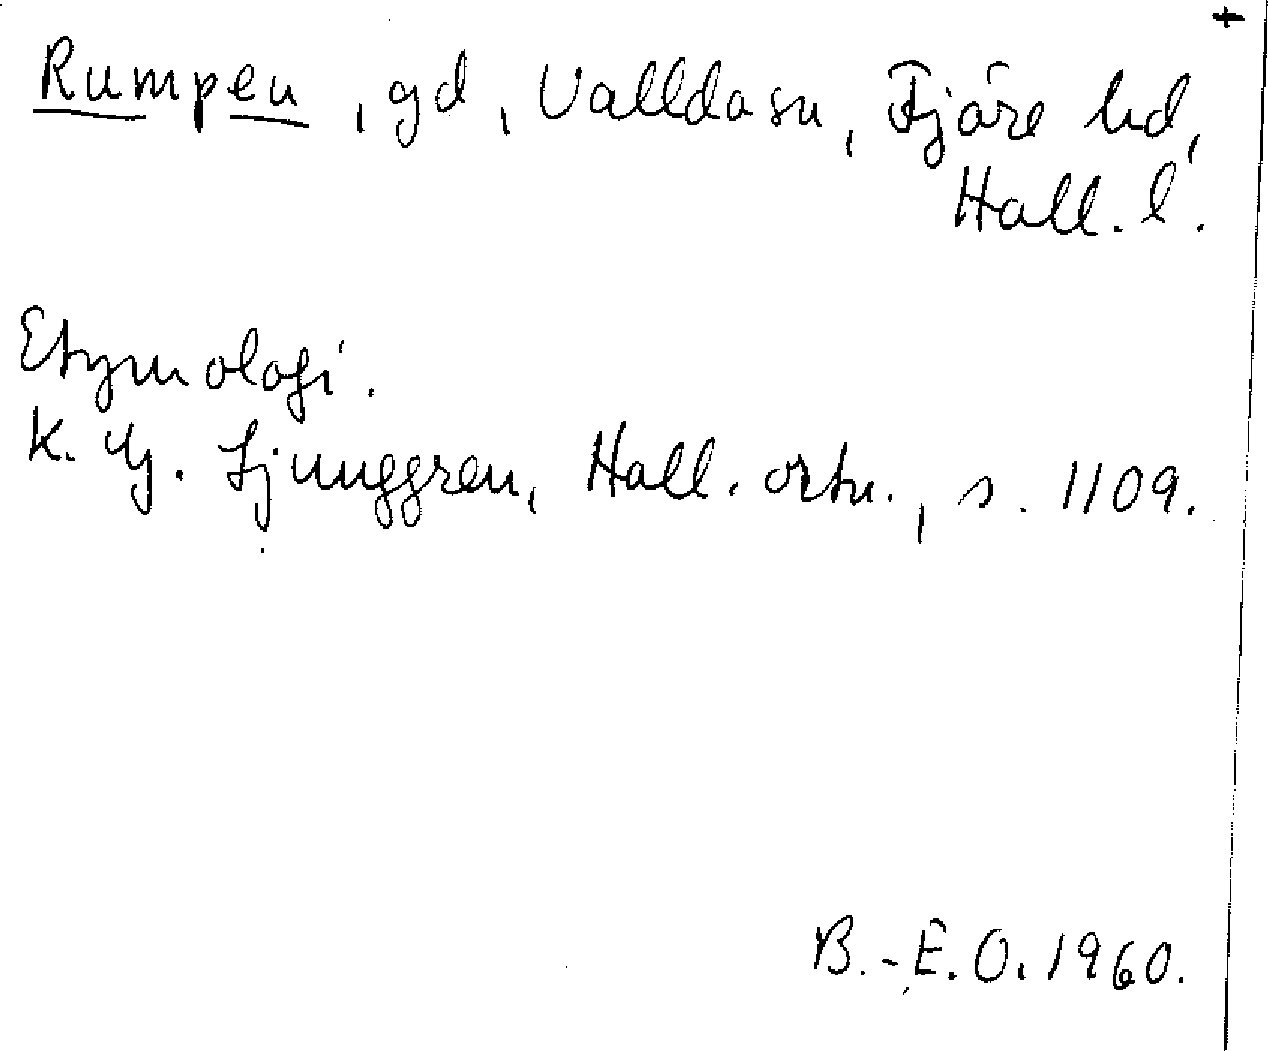 Rumpen, gd, Valldasn, Fjäre hd,
Hall. l.
Etymologi.
K. G. Ljunggren, Hall. ortn., s. 1109.
B.-E.O. 1960.